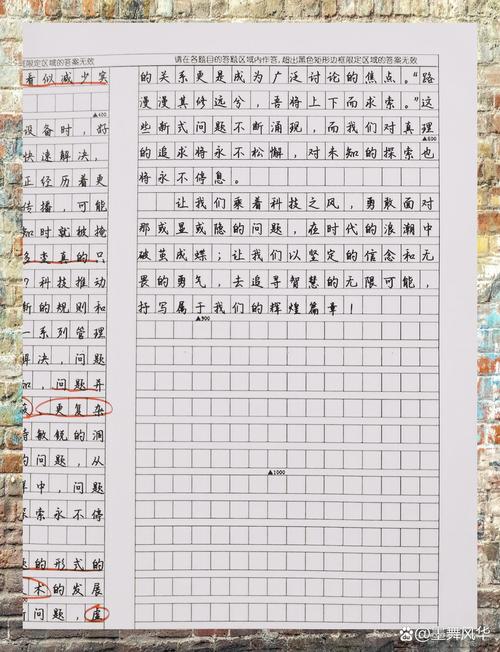 框限定区域的答案无效
看似减少实
▲400
设备时，好
快速解决，
正经历着更
传播，可能
知时就被掩
科技推动
新的规则和
一系列管理
解决，问题
知，问题并
更复杂
敏锐的洞
的问题，从
中，问题
索永不停
的形式的
术的发展
问题，虚
请在各题目的答题区域内作答，超出黑色矩形边框限定区域的答案无效
的关系更是成为广泛讨论的焦点。“路
漫漫其修远兮，吾将上下而求索。”这
些新式问题不断涌现，而我们对真理
▲800
的追求将永不松懈，对未知的探索也
将永不停息。
让我们乘着科技之风，勇敢面对
那或显或隐的问题，在时代的浪潮中
破茧成蝶；让我们以坚定的信念和无
畏的勇气，去追寻智慧的无限可能，
抒写属于我们的辉煌篇章！
▲900
▲1000
墨舞风华